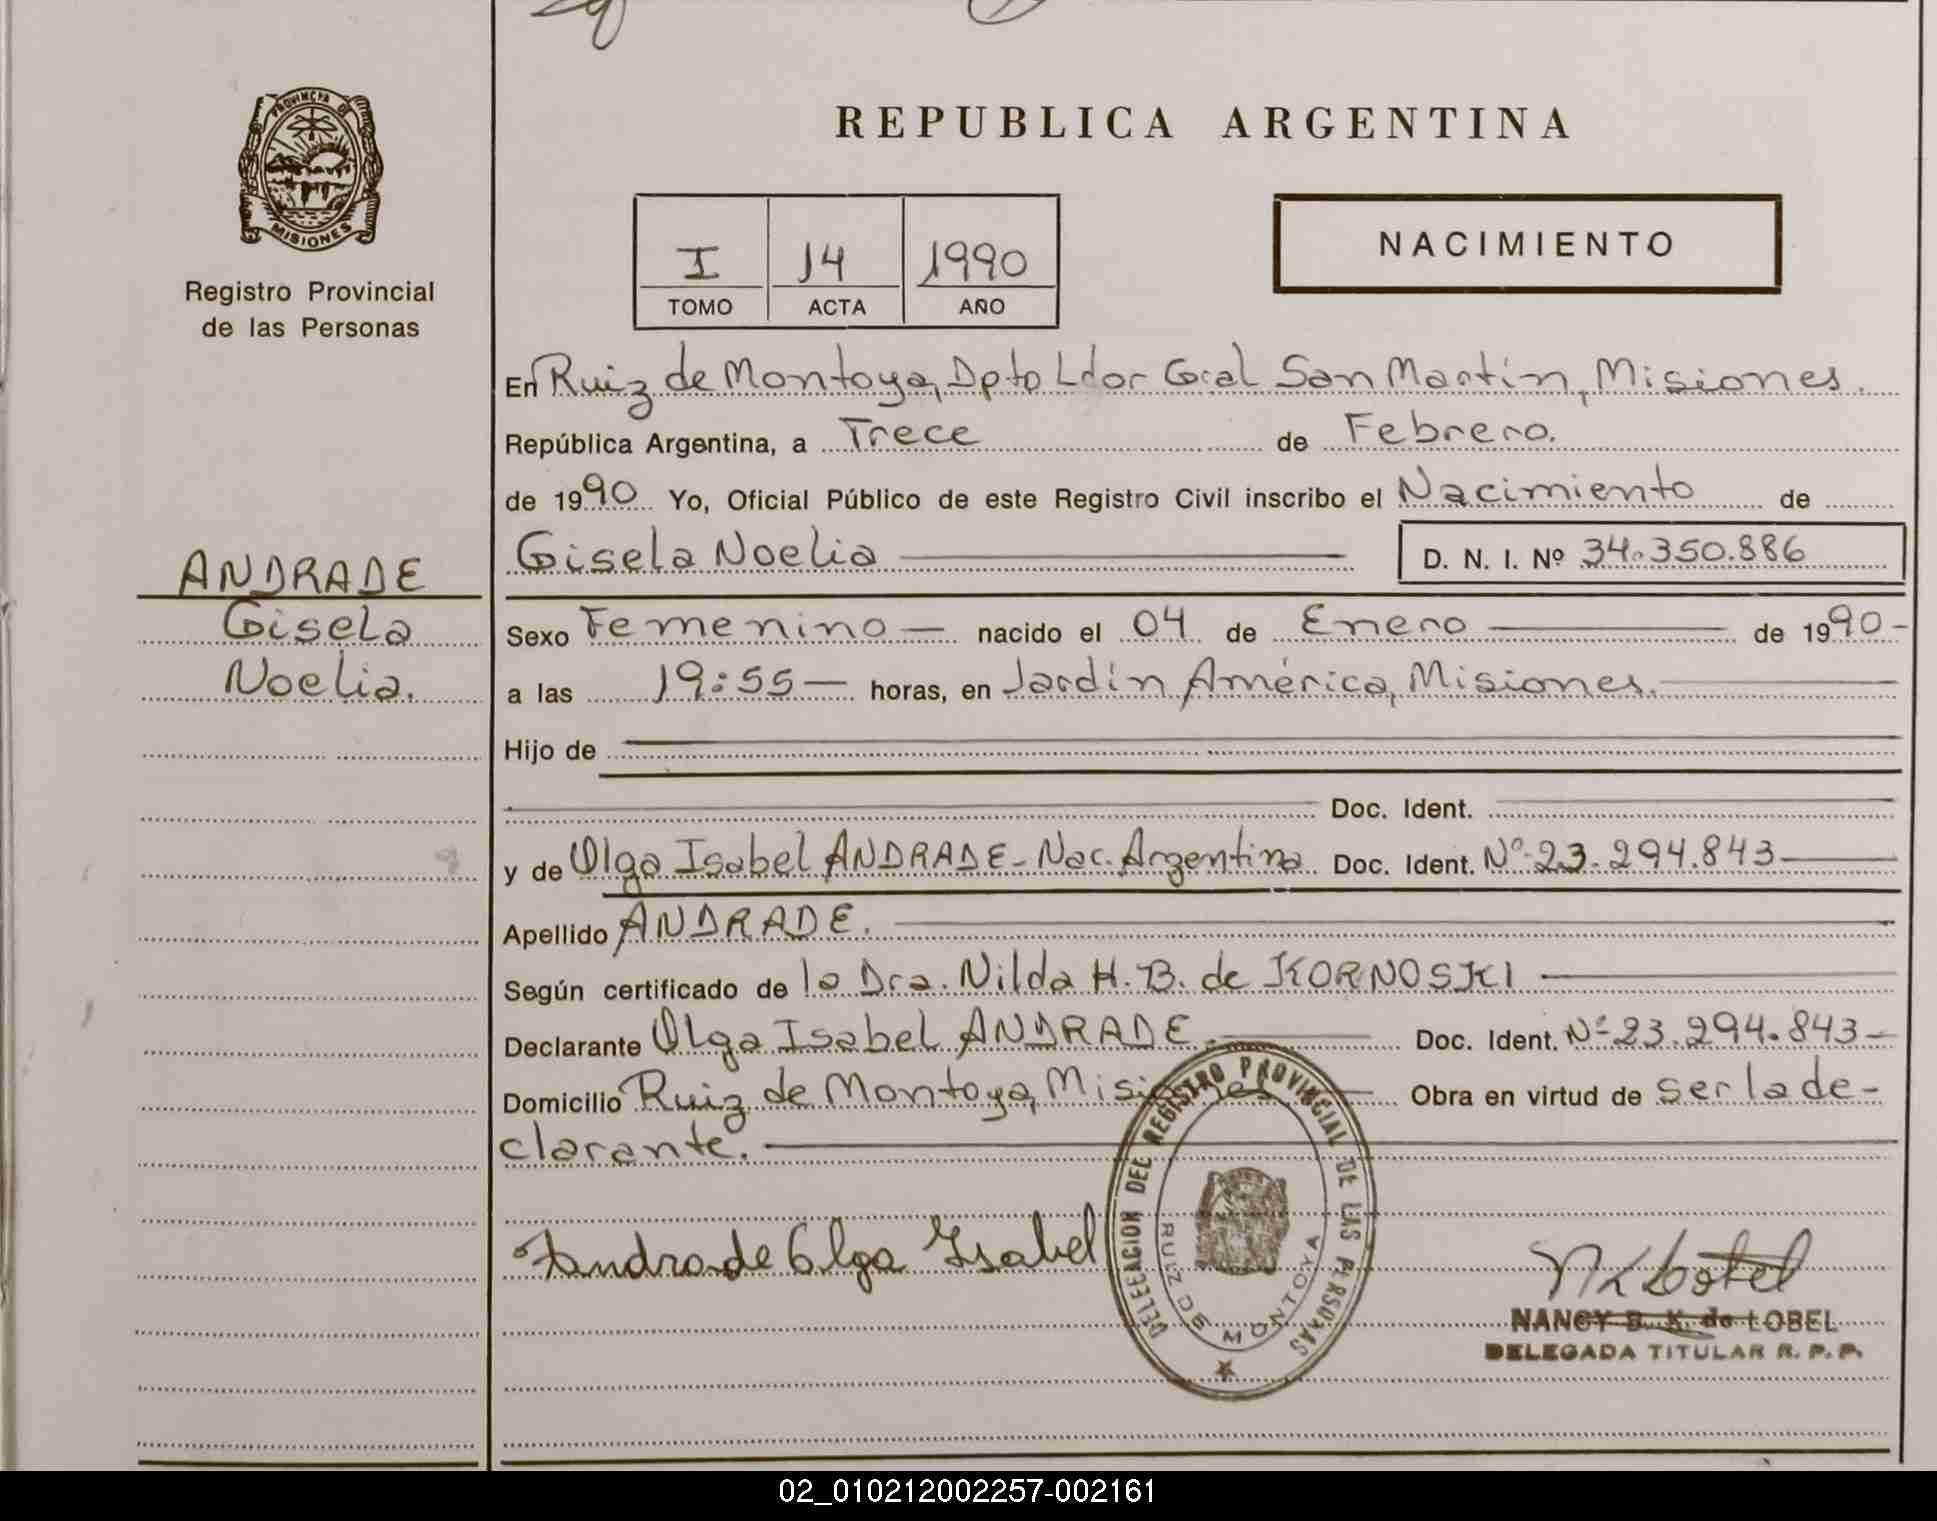 PROVINCIA DE
MISIONES
Registro Provincial
de las Personas
ANDRADE
Gisela
Noelia.
REPUBLICA ARGENTINA
I 14 1990
TOMO ACTA AÑO
NACIMIENTO
En Ruiz de Montoya, Dpto Ldor Gral San Martín, Misiones.
República Argentina, a Trece de Febrero.
de 1990 Yo, Oficial Público de este Registro Civil inscribo el Nacimiento de
Gisela Noelia D. N. I. Nº 34.350.886
Sexo Femenino nacido el 04 de Enero de 1990-
a las 19:55 horas, en Jardín América, Misiones.
Hijo de
Doc. Ident.
y de Olga Isabel ANDRADE - Nac. Argentina Doc. Ident. Nº 23.294.843
Apellido ANDRADE.
Según certificado de la Dra. Nilda H. B. de KORNOSKI
Declarante Olga Isabel ANDRADE. Doc. Ident. Nº 23.294.843-
Domicilio Ruiz de Montoya, Misiones Obra en virtud de ser la de-
clarante.
Andrade Olga Isabel
DELEGACION DEL REGISTRO PROVINCIAL DE LAS PERSONAS
RUIZ DE MONTOYA
NANCY B. K. de LOBEL
DELEGADA TITULAR R. P. P.
02_010212002257-002161